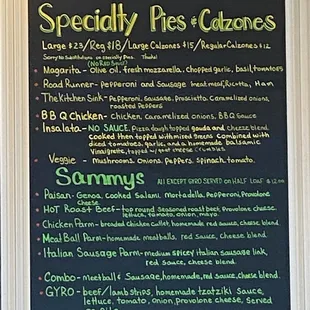 Specialty Pies & Calzones
Large $23/Reg $18/Large Calzones $15/Regular Calzones $12
Sorry No Substitutions on Specialty Pies. Thanks!
(No Red Sauce)
Margarita - Olive oil, fresh mozzarella, chopped garlic, basil, tomatoes
Road Runner - Pepperoni and Sausage meat meat, Ricotta, Ham
The Kitchen Sink - Pepperoni, Sausage, Prosciutto, Caramelized onions,
roasted Peppers
BBQ Chicken - Chicken, Caramelized onions, BBQ Sauce
Insalata - NO SAUCE. Pizza dough topped gouda and cheese blend.
Cooked then topped with mixed greens Combined with
diced tomatoes, garlic, and a homemade balsamic
Vinaigrette, topped with
Veggie - mushrooms, Onions, Peppers, spinach, tomato.
Sammys ALL EXCEPT GYRO SERVED ON HALF LOAF $12.00
Paisan - Genoa, cooked Salami, mortadella, pepperoni, Provolone
Cheese
HOT Roast Beef - top round seasoned roast beef, provolone cheese,
lettuce, tomato, onion, mayo.
Chicken Parm - breaded chicken cutlet, homemade red sauce, cheese blend
Meat Ball Parm - homemade meatballs, red sauce, cheese blend.
Italian Sausage Parm - medium spicy italian sausage link,
red sauce, cheese blend.
Combo - meatball & Sausage, homemade, red sauce, cheese blend.
GYRO - beef/lamb strips, homemade tzatziki sauce,
lettuce, tomato, onion, provolone cheese, Served